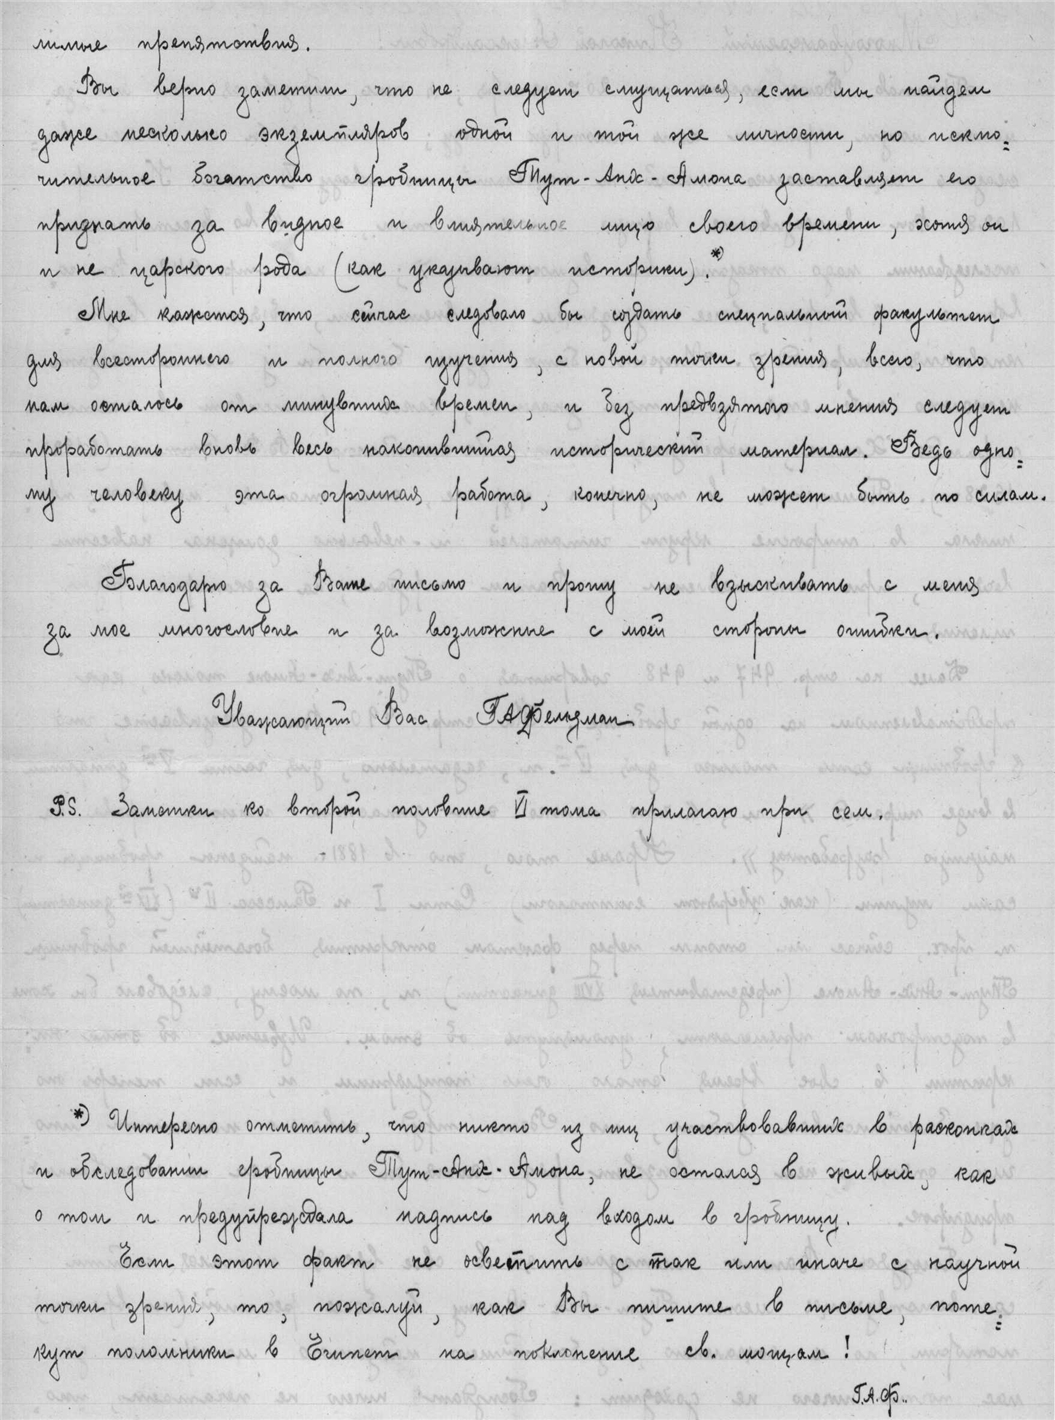 лимые препятствия.
Вы верно заметили, что не следует смущаться, если мы найдем
даже несколько экземпляров одной и той же личности, но исклю=
чительное богатство гробницы Тут-Анх-Амона заставляет его
признать за видное и влиятельное лицо своего времени, хотя он
и не царского рода (как указывают историки).*)
Мне кажется, что сейчас следовало бы создать специальный факультет
для всестороннего и полного изучения, с новой точки зрения, всего, что
нам осталось от минувших времен, и без предвзятого мнения следует
проработать вновь весь накопившийся исторический материал. Ведь одно=
му человеку эта огромная работа, конечно, не может быть по силам.
Благодарю за Ваше письмо и прошу не взыскивать с меня
за мое многословие и за возможные с моей стороны ошибки.
Уважающий Вас Г.А.Фельдман
P.S. Заметки ко второй половине VI тома прилагаю при сем.
*) Интересно отметить, что никто из лиц участвовавших в раскопках
и обследовании гробницы Тут-Анх-Амона, не остался в живых, как
о том и предупреждала надпись над входом в гробницу.
Если этот факт не осветить с так или иначе с научной
точки зрения, то, пожалуй, как Вы пишите в письме, поте=
кут паломники в Египет на поклонение св. мощам!
Г.А.Ф..